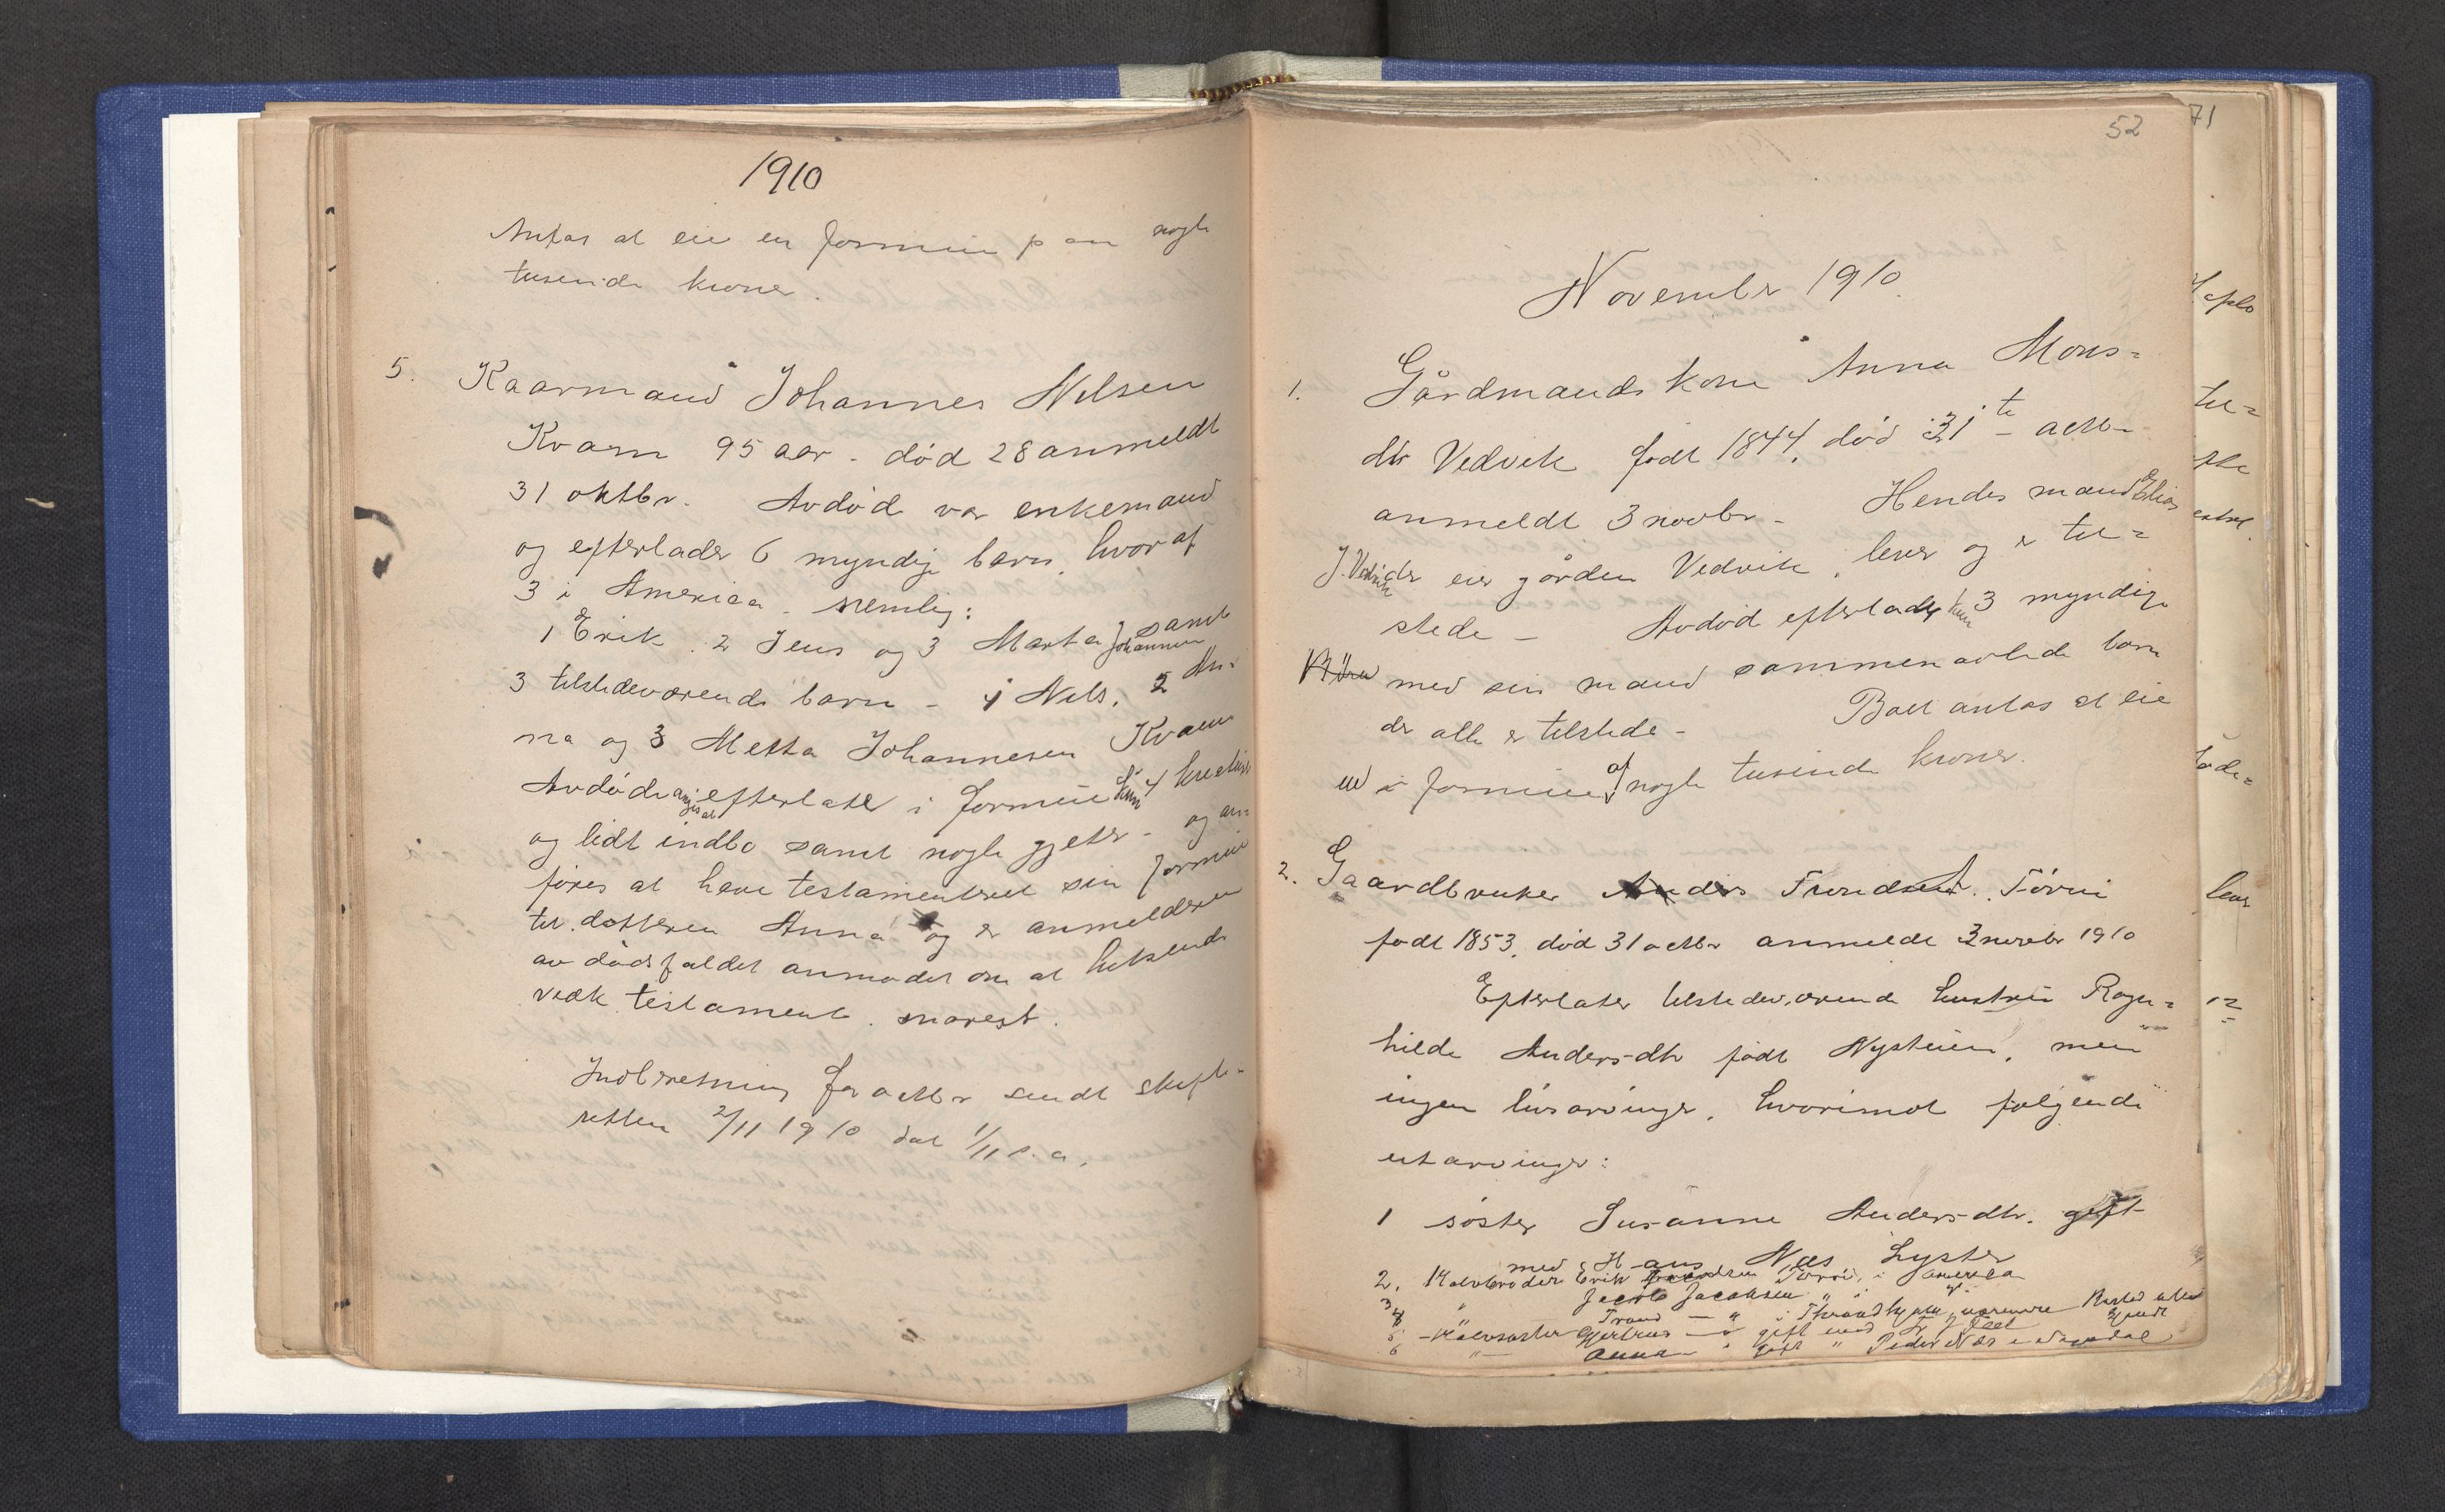 1910
Antas at eie en formue p an nogle
tusende kroner.
5. Kaarmand Johannes Nilsen
Kvam 95 aar - død 28 anmeldt
31 oktbr. Avdøde var enkemand
og efterlader 6 myndige barn, hvoraf
3 i America - nemlig:
1 Erik . 2 Jens og 3 Marta Johannesen samt
3 tilstedeværende barn - 1 Nils, 2 An=
na og 3 Metta Johannesen Kvam
Avdøde angis at efterlate i formue kun 4 kreatur
og lidt indbo samt nogle gjeter - og an=
føres at have testamenteret sin formue
til dotteren Anna og er anmelderen
av dødsfaldet anmodet om at
testamente snarest.
Indberetning for octbr sendt skifte-
retten 2/11 1910 dat 1/11 s. a.
52
71
November 1910
1. Gårdmandskone Anna Mons=
dtr Vedvik født 1844, død 31te octbr
anmeldt 3 novbr - Hendes mand Elias
J. Vedvik der eier gården Vedvik, lever og er til=
stede - Avdøde efterlader kun 3 myndige
med sin mand sammenavlede barn
der alle er tilstede - Boet antas at eie
en formue af nogle tusende kroner.
2. Gaardbruker Anders Trondsen Tørvi
født 1853, død 31 octbr anmeldt 3 novbr 1910
Efterlater tilstedeværende hustru Ragn=
hilde Andersdtr født Nysteien, men
ingen livsarvinger, hvorimot følgende
utarvinger:
1 søster Susanne Andersdtr. gift
med Hans Næs Lyster
2. Halvbroder Erik Trondsen Tørvi, i America
3 " Jacob Jacobsen " "
4 " Trond - " i Throndhjem, nærmere
5 - Halvsøster Gjertrud - " gift med
6 " Anna - " gift " Peder Næs i